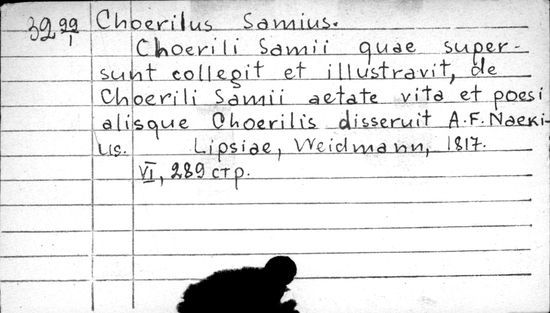 32 99/1 Choerilus Samius.
Choerili Samii quae super-
sunt collegit et illustravit, de
Choerili Samii aetate vita et poesi
alisque Choerilis disseruit A.F. Naeki-
us. Lipsiae, Weidmann, 1817.
VI, 289 стр.